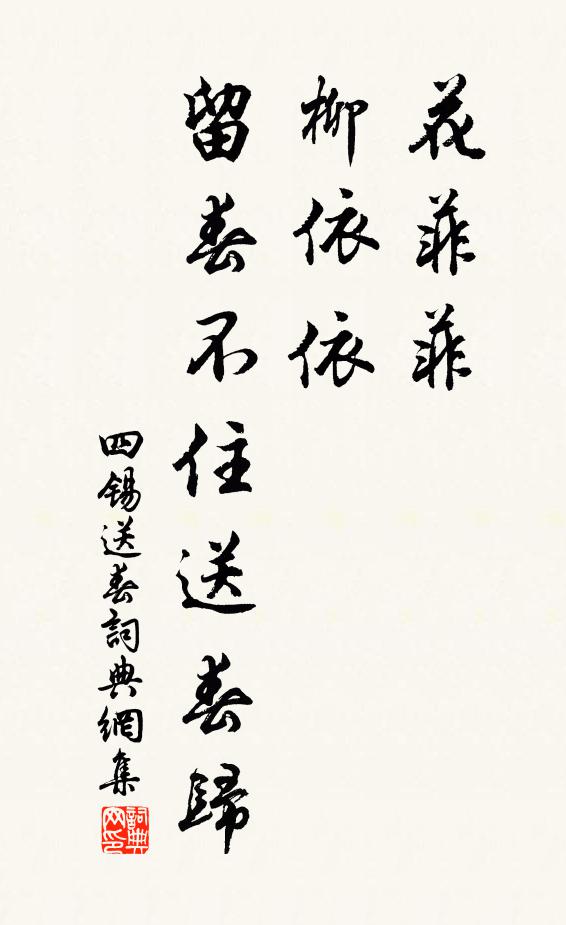 花菲菲
柳依依
留春不住送春歸
四锡送春詞典網集
詞典网印